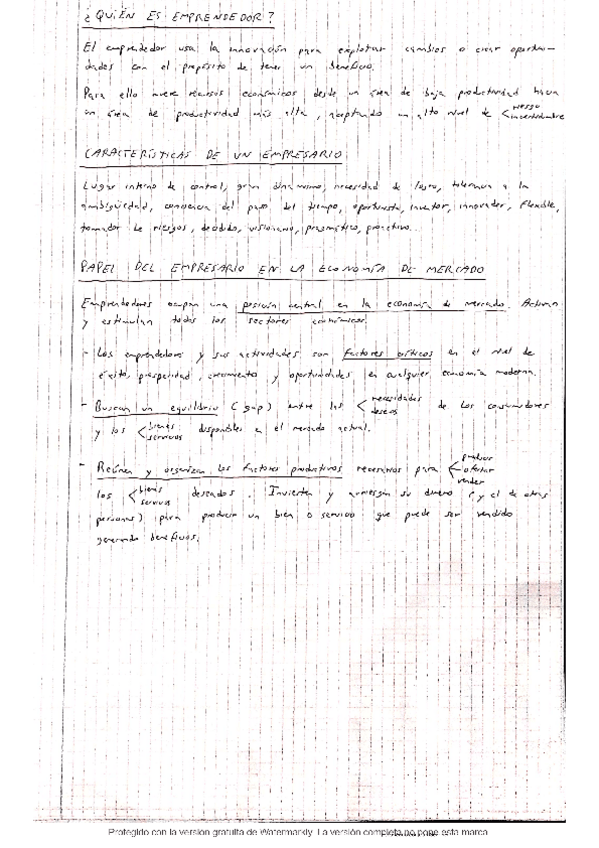 ¿QUIÉN ES EMPRENDEDOR?
El emprendedor usa la innovación para explotar cambios o crear oportuni-
dades con el propósito de tener un beneficio.
Para ello mueve recursos económicos desde un área de baja productividad hacia
un área de productividad más alta, aceptando un alto nivel de < riesgo
incertidumbre
CARACTERÍSTICAS DE UN EMPRESARIO
Lugar interno de control, gran dinamismo, necesidad de logro, tolerancia a la
ambigüedad, conciencia del paso del tiempo, oportunista, inventor, innovador, flexible,
tomador de riesgos, decidido, visionario, pragmático, proactivo...
PAPEL DEL EMPRESARIO EN LA ECONOMÍA DE MERCADO
Emprendedores ocupan una posición central en la economía de mercado. Activan
y estimulan todos los sectores económicos.
- Los emprendedores y sus actividades son factores críticos en el nivel de
éxito, prosperidad, crecimiento y oportunidades en cualquier economía moderna.
- Buscan un equilibrio (gap) entre las < necesidades
deseos
de los consumidores
y los < bienes
servicios
disponibles en el mercado actual.
- Reúnen y organizan los factores productivos necesarios para < probar
ofertar
vender
los < bienes
servicios
deseados. Invierten y arriesgan su dinero (y el de otras
personas) para producir un bien o servicio que puede ser vendido
generando beneficios.
Protegido con la versión gratuita de Watermarkly. La versión completa no pone esta marca